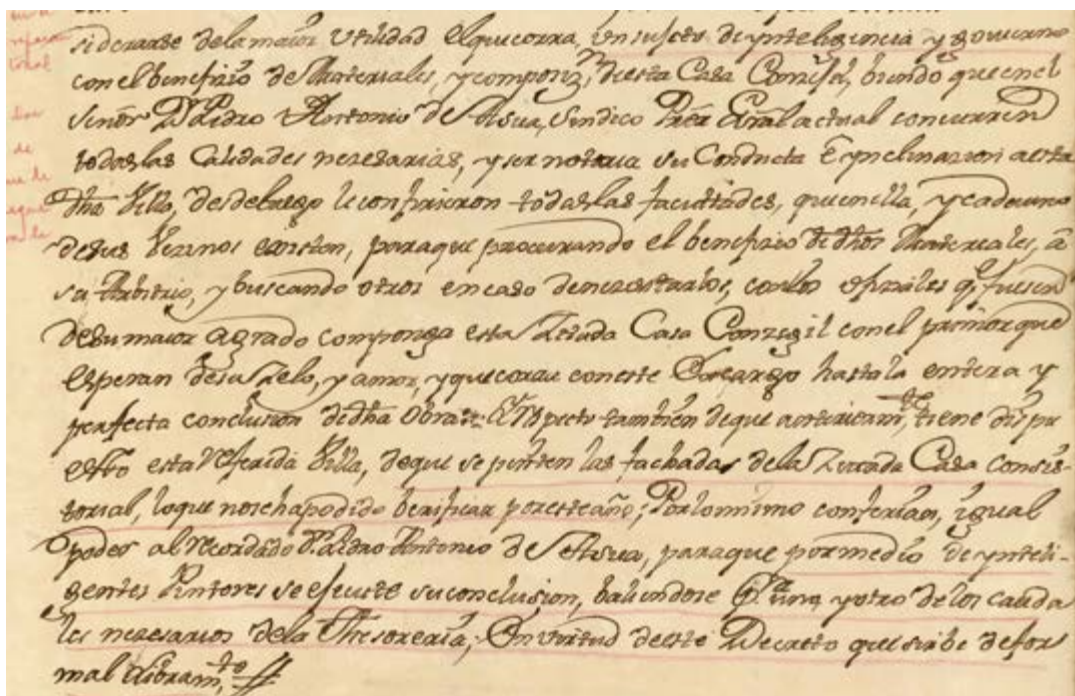 siderarse dela maior Utilidad el que corra, un sujeto de ynteligencia y govierno
con el benefizio de Materiales, y compoz.on, de esta Casa Conzejil, biendo que en el
Señor Dn. Pedro Antonio de Asua, Sindico Prōr Gral actual concurren
todas las Calidades nezesarias, y ser notoria su Conducta E ynclinazion a esta
dha Villa, desde luego le confirieron todas las facultades, que en ella, y cada uno
de sus Vezinos existen, para que procurando el benefizio de dhos Materiales, a
su Arbitrio, y buscando otros en caso de nezesitarlos, con los ofiziales q.e fuesen
de su maior agrado componga esta Zitada Casa Conzegil con el primor que
esperan de su Zelo, y amor, y que corra con este Encargo hasta la entera y
perfecta conclusion de dha Obra: Respecto tambien de que anteriorm.te, tiene dispu
esto esta Referida Villa, de que se pinten las fachadas dela Zitada Casa consis-
torial, lo que no se ha podido berificar por este año; Por lo mismo conferian, igual
poder al recordado Dn. Pedro Antonio de Asua, para que por medio de ynteli-
gentes Pintores se efectue su conclusion, baliendose P.a uno, y otro de los cauda
les nezesarios dela Thesoreria; En virtud de este Decreto que sirbe de for
mal Libram.to